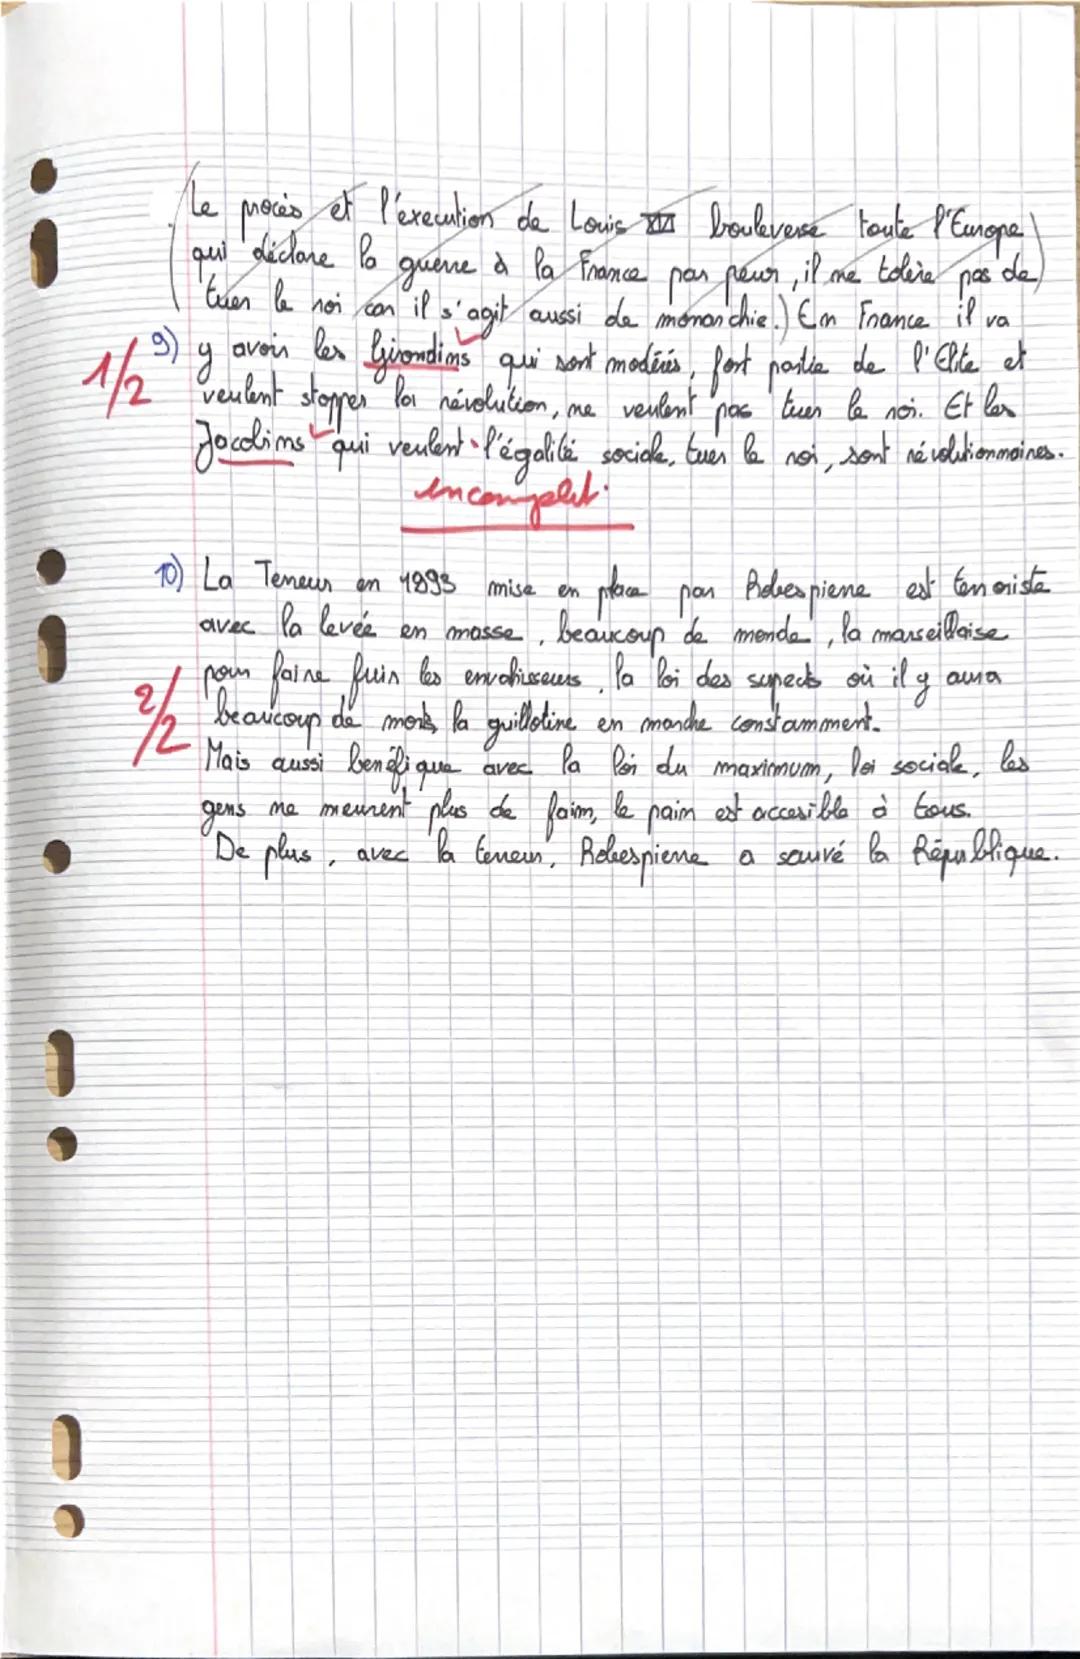 (Le procès et l'execution de Louis XVI bouleverse toute l'Europe
qui déclare la guerre à la France par peur, il ne tolère pas de
tuer le roi car il s'agit aussi de monarchie.) En France il va
9) y avoir les Girondins qui sont modérés, font partie de l'Elite et
1/2 veulent stopper la révolution, ne veulent pas tuer le roi. Et les
Jacobins qui veulent l'égalité sociale, tuer le roi, sont révolutionnaires.
incomplet.
10) La Terreur en 1893 mise en place par Robespierre est terroriste
avec la levée en masse, beaucoup de monde, la marseillaise
pour faire fuir les envahisseurs, la loi des supects où il y aura
2/2 beaucoup de morts, la guillotine en marche constamment.
Mais aussi bénéfique avec la loi du maximum, loi sociale, les
gens ne meurent plus de faim, le pain est accesible à tous.
De plus, avec la terreur, Robespierre a sauvé la République.